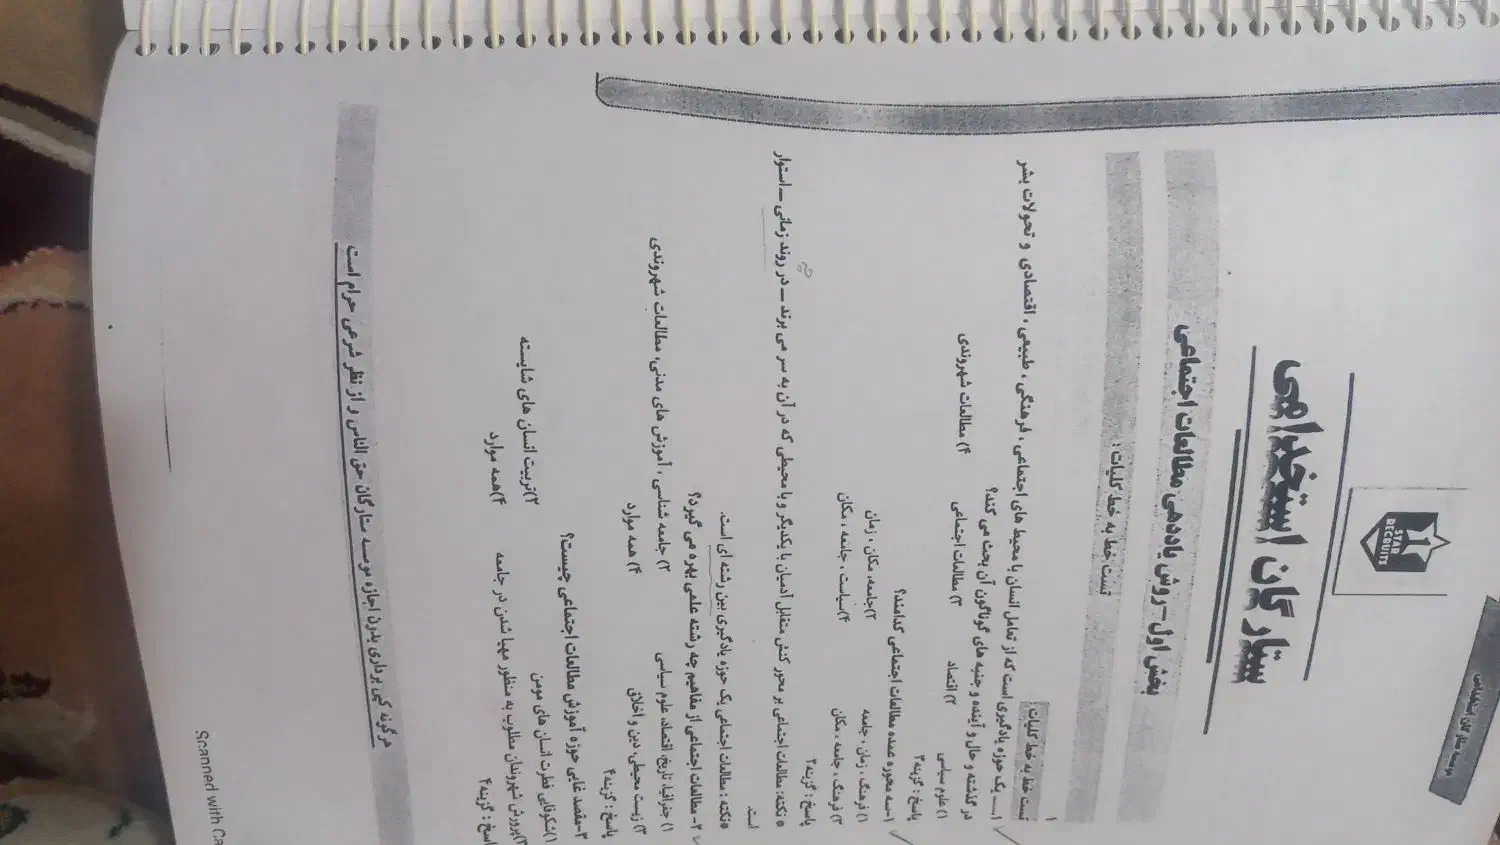 موسسه ستارگان استخدامی
STAR
RECRUITS
ستارگان استخدامی
بخش اول-روش یاددهی مطالعات اجتماعی
تست خط به خط کلیات :
۱
تست خط به خط کلیات:
۱.... یک حوزه یادگیری است که از تعامل انسان با محیط های اجتماعی ، فرهنگی ، طبیعی ، اقتصادی و تحولات بشر
در گذشته و حال و آینده و جنبه های گوناگون آن بحث می کند؟
۱) علوم سیاسی ۲) اقتصاد ۳) مطالعات اجتماعی ۴) مطالعات شهروندی
پاسخ : گزینه۳
۱-سه محوره عمده مطالعات اجتماعی کدامند؟
۱) فرهنگ ، زمان ، جامعه ۲)جامعه، مکان ، زمان
۳) فرهنگ ، جامعه ، مکان ۴)سیاست ، جامعه ، مکان
پاسخ : گزینه۲
* نکته: مطالعات اجتماعی بر محور کنش متقابل آدمیان با یکدیگر و با محیطی که در آن به سر می برند – در روند زمانی – استوار
است.
*نکته : مطالعات اجتماعی یک حوزه یادگیری بین رشته ای است.
۲- مطالعات اجتماعی از مفاهیم چه رشته علمی بهره می گیرد؟
۱) جغرافیا، تاریخ، اقتصاد، علوم سیاسی ۲) جامعه شناسی ، آموزش های مدنی، مطالعات شهروندی
۳) زیست محیطی، دین و اخلاق ۴) همه موارد
پاسخ : گزینه۴
۳-مقصد غایی حوزه آموزش مطالعات اجتماعی چیست؟
۱)شکوفایی فطرت انسان های مومن ۲)تربیت انسان های شایسته
۳)پرورش شهروندان مطلوب به منظور مهیا شدن در جامعه ۴)همه موارد
اسخ : گزینه۴
هرگونه کپی برداری بدون اجازه موسسه ستارگان حق الناس و از نظر شرعی حرام است
Scanned with Ca